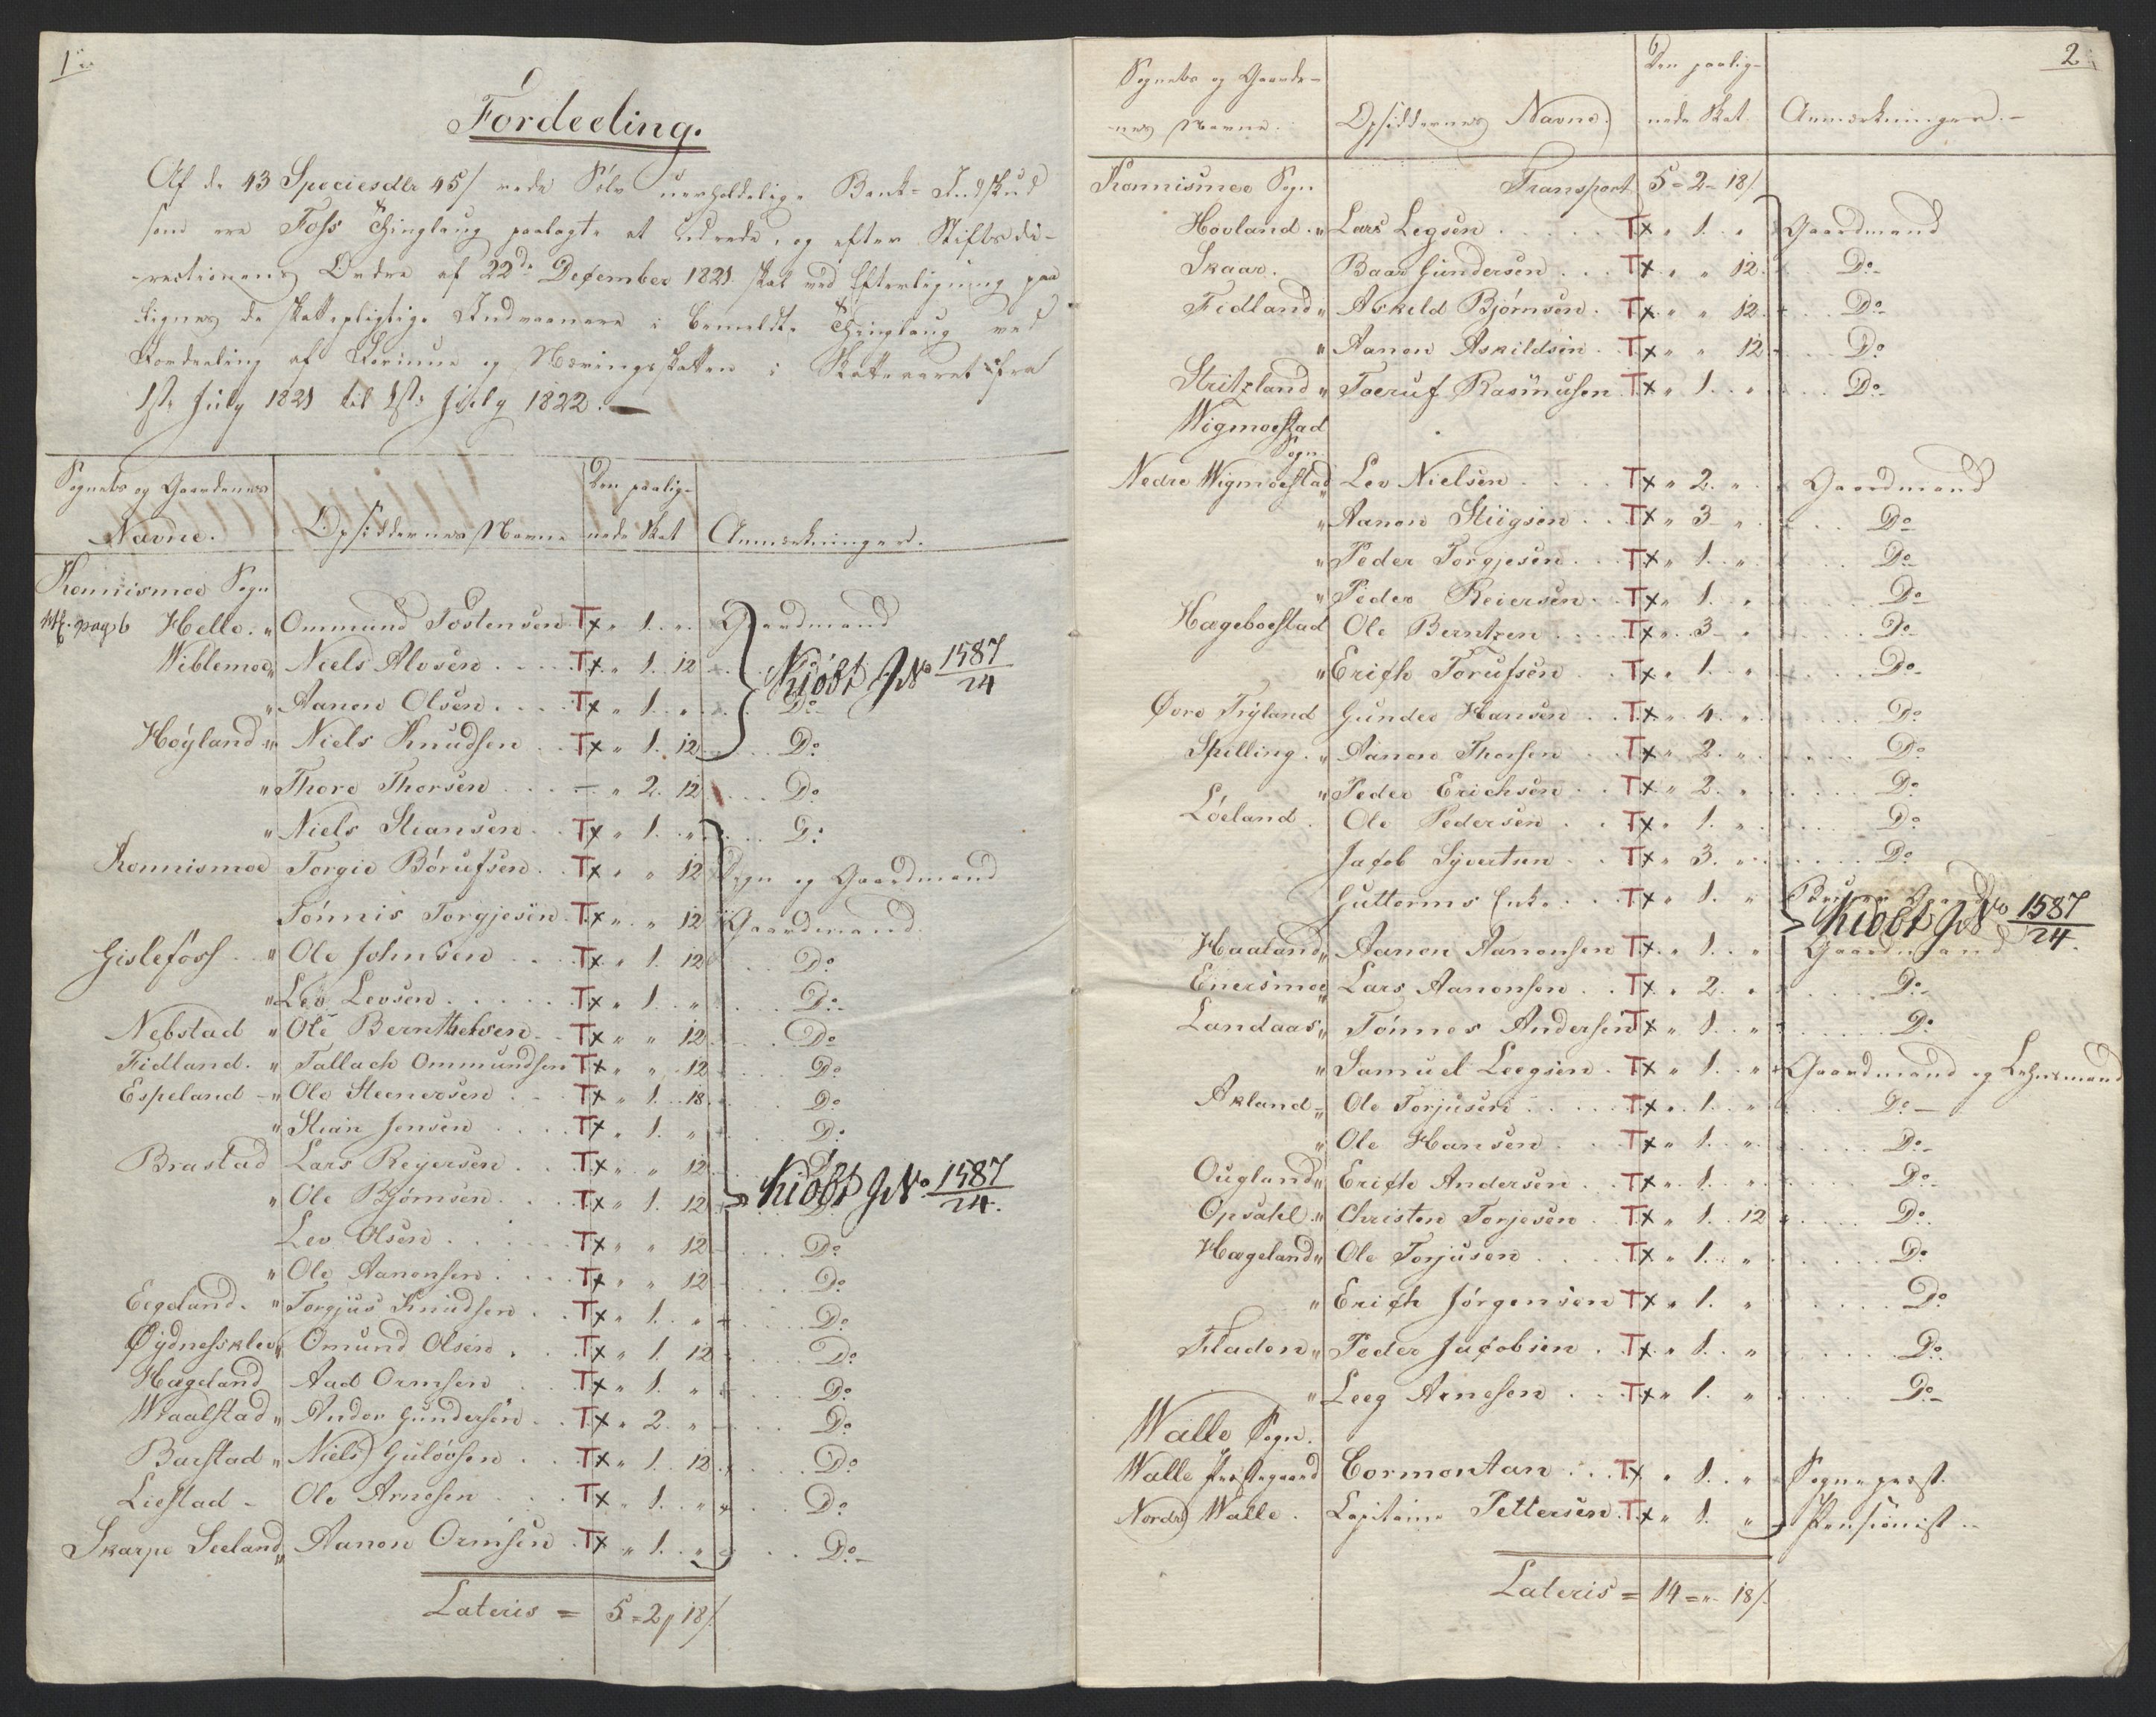 1.
Fordeeling.
Af de 43 Speciesdlr 45/ rede Sölv uerholdelige Bank-Indskud
som ere Foss Thinglaug paalagte at udrede, og efter Stiftsdi-
rectionens Ordre af 22de December 1821 skal ved Efterligning paa
lignes de skattepligtige Indvaanere i bemeldte Thinglaug ved
Fordeeling af Formue og Næringsskatten i Skatteaaret fra
1ste July 1821 til 1ste July 1822.
Sognets og Gaardenes Navne. Opsiddernes Navne Den paalig-nede Skat Anmærkninger.
Konnismoe Sogn
pag 6 Helle. " Ommund Tostensen Tx " 1. " Gaardmand
Wiblemoe " Niels Alvsen Tx " 1. 12 Kiöbt J No 1587/24
" Aanon Olsen Tx " 1. " Do
Høyland " Niels Knudsen Tx " 1. 12 Do
" Thore Thorsen - " 2. 12 Do
" Niels Stiansen Tx " 1. " Do
Konnismoe Torgie Børufsen Tx " " 12 og Gaardmand
Tønnis Torgjesen Tx " " 12 Gaardmand
Gislefoss " Ole Johnsen Tx " 1. 12 Do
" Lev Levsen Tx " 1. " Do
Nebstad " Ole Bernthelsen Tx " " 12 Do
Fidland. " Tallach Ommundsen Tx " " 12 Do
Espeland " Ole Steenersen Tx " 1. 18 Do
" Stian Jensen Tx " 1. " Do
Brastad Lars Reyersen Tx " " 12 Do
" Ole Bjørnsen Tx " 1. 12 Kiöbt J No 1587/24.
Lev Olsen Tx " " 12 Do
" Ole Aanonsen Tx " " 12 Do
Eegeland. " Torgjus Knudsen Tx " 1. " Do
Øydnessklev " Omund Olsen Tx " 1. 12 Do
Hageland Aad Ormsen Tx " 1. " Do
Waalstad " Ander Gundersen Tx " 2. " Do
Barstad " Niels Guløvsen Tx " 1. 12 Do
Liestad - Ole Arnesen Tx " 1. " Do
Skarpe Seeland " Aanon Ormsen Tx " 1. " Do
Lateris = 5 = 2, 18/
2.
Sognets og Gaarde-nes Navne. Opsiddernes Navne. Den paalig-nede Skat Anmærkninger.
Konnismoe Sogn Transport 5 - 2 - 18/
Hovland. " Lars Legsen Tx " 1. " Gaardmand
Skaar. Baar Gundersen Tx " " 12 Do
Fidland " Askeld Bjørnsen Tx " " 12 Do
" Aanon Askildsen Tx " " 12 Do
Stritzland " Toeruf Rasmusen Tx " 1. " Do
Wigmoestad
Sogn
Nedre Wigmoestad " Lev Nielsen Tx " 2. " Gaardmand
" Aanon Stiigsen Tx " 3 " Do
" Peder Torgjesen Tx " 1. " Do
" Peder Reiersen Tx " 1. " Do
Hægeboestad Ole Berntzen Tx " 3 " Do
" Erich Torufsen Tx " 1. " Do
Øvre Tryland Gunder Hansen Tx " 4. " Do
Spilling. " Aanon Thorsen Tx " 2. " Do
" Peder Erichsen Tx " 2. " Do
Løeland. Ole Pedersen Tx " 1. " Do
Jacob Syvertsen Tx " 3. " Do
Guttorms Enke Tx " 1. " Kiöbt J No 1587/24.
Haaland " Aanon Aanonsen Tx " 1. " Gaardmand
Enersmoe " Lars Aanonsen Tx " 2. " Do
Landaas " Tønnes Andersen Tx " 1. " Do
" Samuel Leegsen Tx " 1. " Gaardmand og Lehnsmand
Akland " Ole Torjusen Tx " 1. " Do
" Ole Hansen Tx " 1. " Do
Ougland " Erich Andersen Tx " 1. " Do
Opsahl " Christen Torjesen Tx " 1. 12 Do
Hægeland " Ole Torjusen Tx " 1. " Do
" Erich Jørgensen Tx " 1. " Do
Fladen " Peder Jacobsen Tx " 1. " Do
" Leeg Arnesen Tx " 1. " Do
Walle Sogn.
Walle Præstegaard Cormontan Tx " 1. " Sognepræst.
Nordre Walle. Capitaine Pettersen Tx " 1. " Pensionist
Lateris = 14 = " - 18/